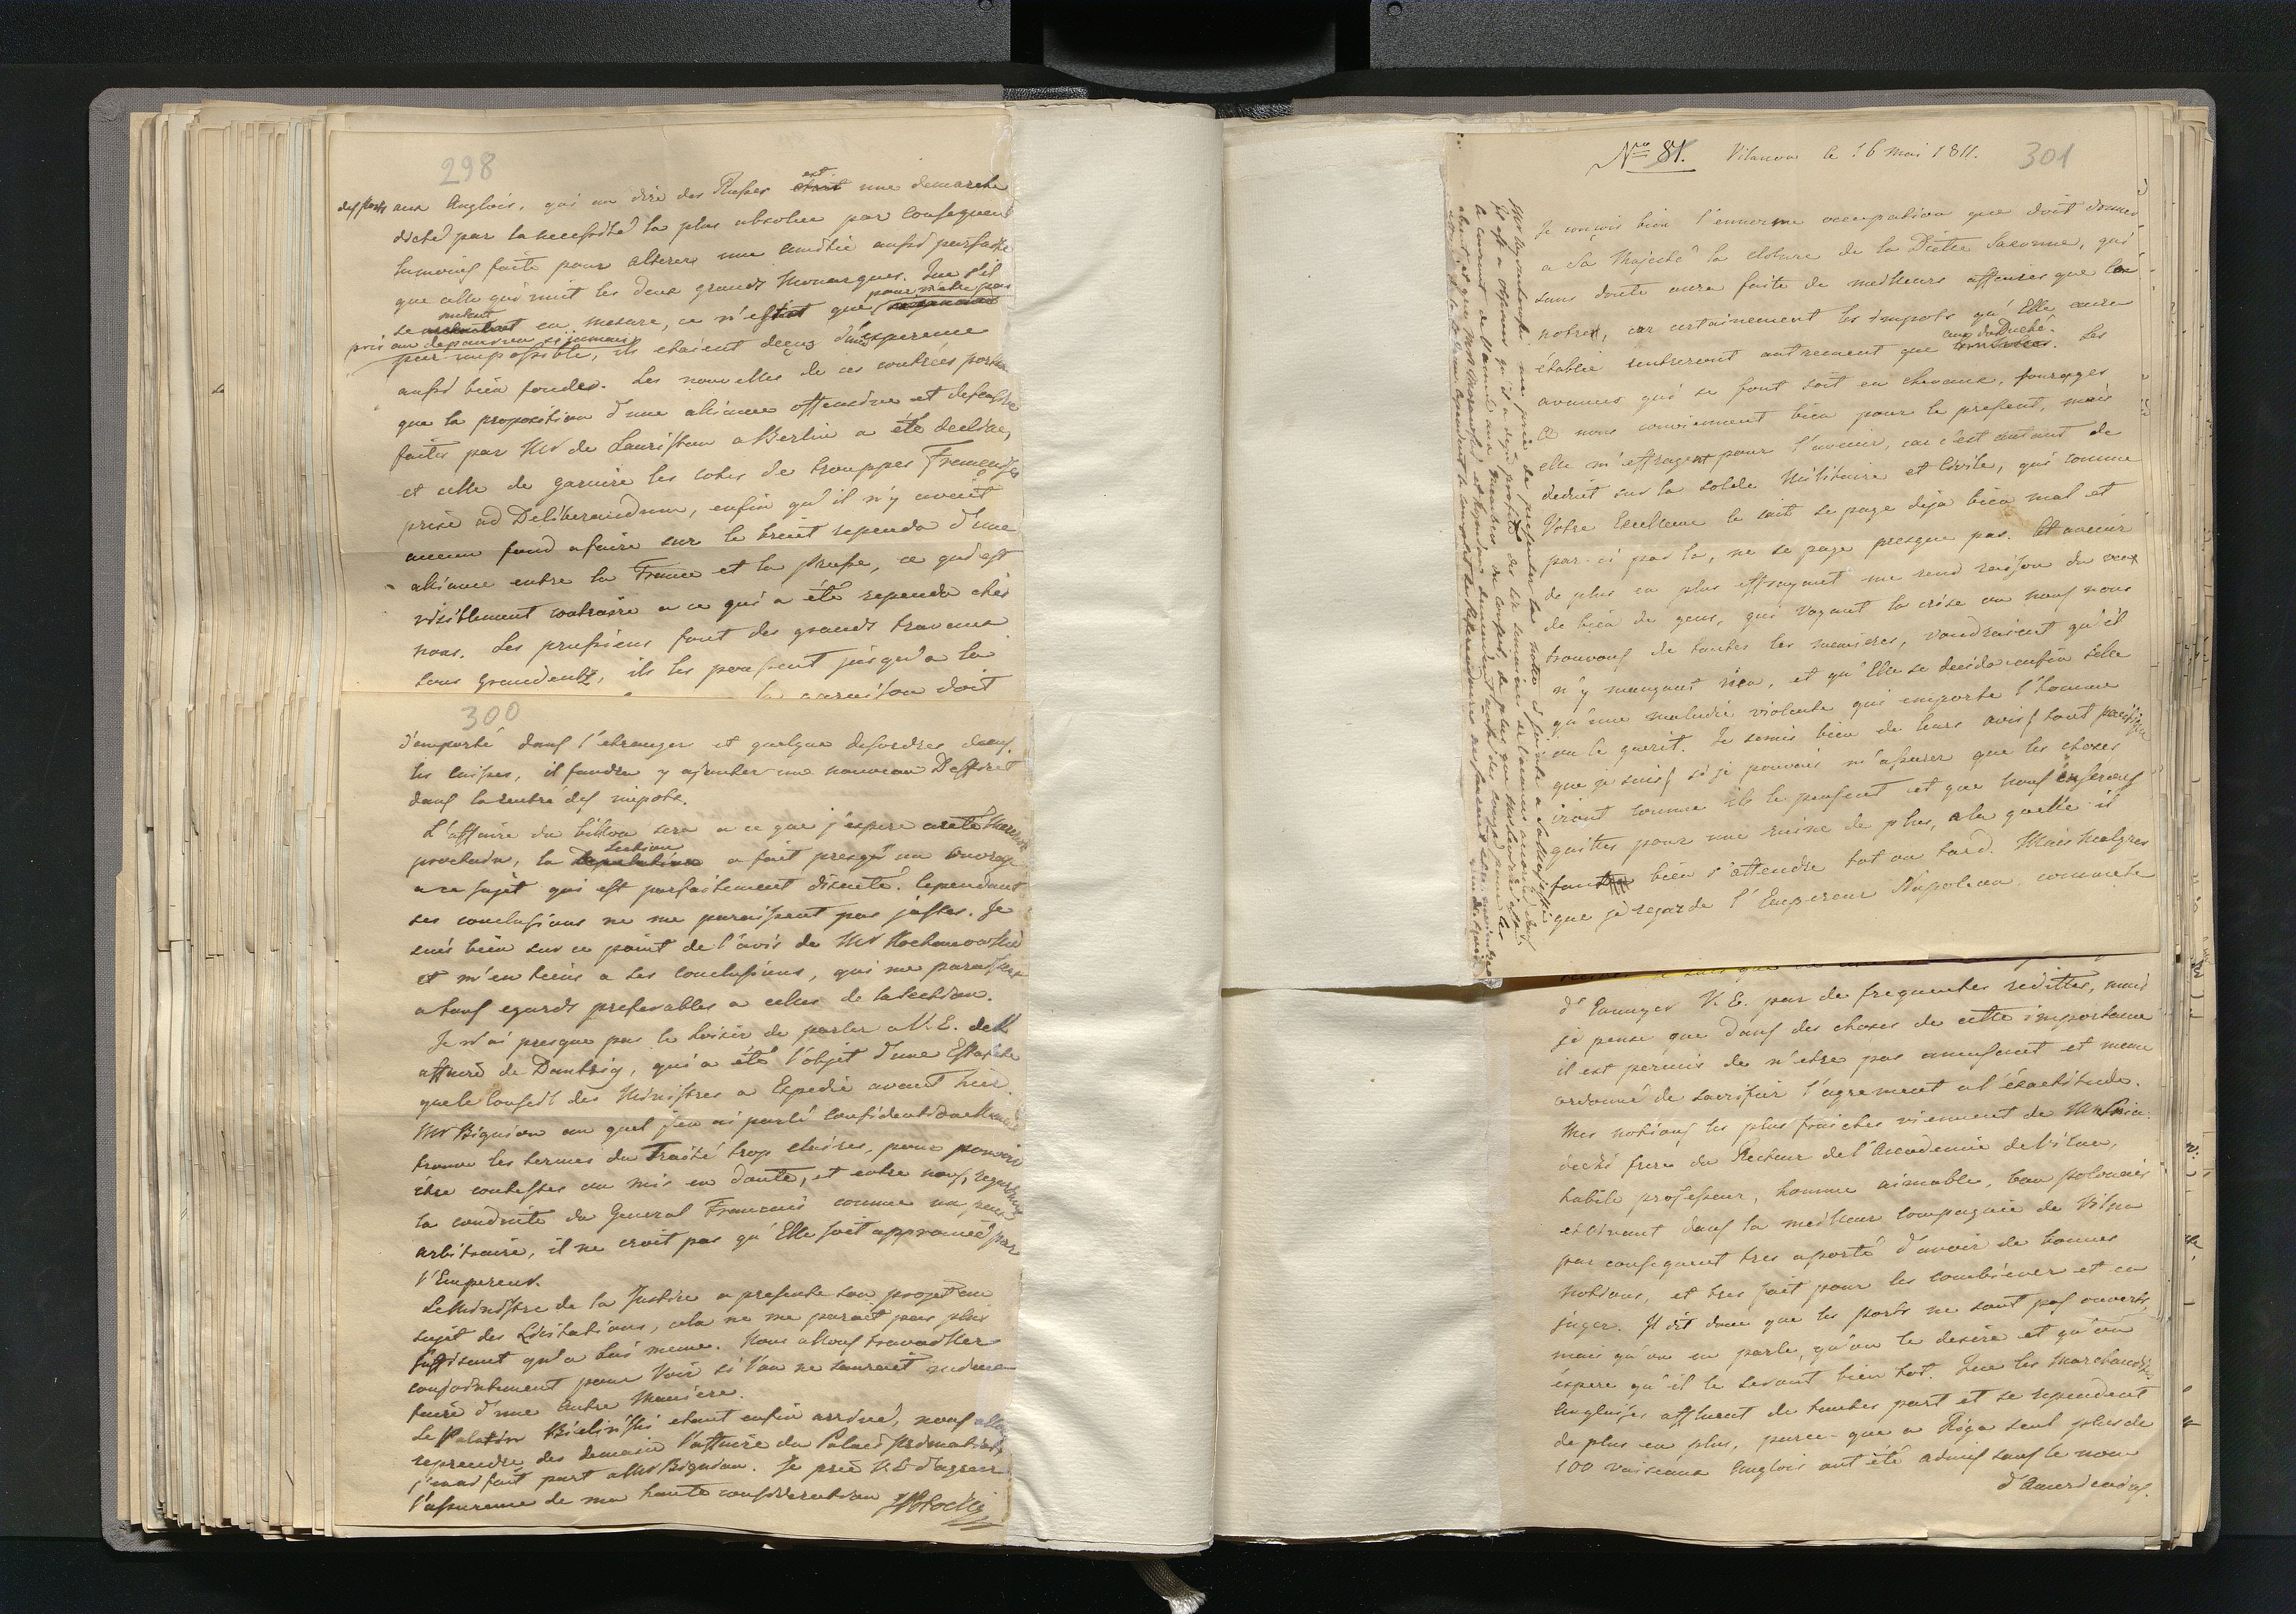 298
des ports aux Anglois, qui au dire des Russes est une demarche
dicté par la necessité la plus absolue par consequent
la moins faite pour alterer une amitié aussi parfaite
que celle qui unit les deux grands Monarques. Que s'il
se mettent en mesure, ce n'est que pour n'etre pas
pris au depourvu si jamais
par impossible, ils etaient deçus d'une esperence
aussi bien fondée. Les nouvelles de ces contrées portent
que la proposition d'une aliance offensive et defensive
faites par Mr de Lauriston a Berlin a été decliné,
et celle de garnire les cotes de trouppes Françaises
prise ad Deliberandum, enfin qu'il n'y avait
aucun fond a faire sur le bruit rependu d'une
aliance entre la France et la Prusse, ce qui est
visiblement contraire a ce qui a été rependu chés
nous. Les prussiens font des grands travaux
sous Graudentz, ils les poussent jusqu'a la
la garnison doit
300
d'emporté dans l'etranger et quelque desordres dans
les caisses, il faudra y ajouter un nouveau Defficit
dans la rentré des impots.
L'affaire du billon sera a ce que j'espere areté
prochain, la Section a fait presqu'un ouvrage
a ce sujet qui est parfaitement discuté. Cependant
ses conclusions ne me paraissent pas justes. Je
suis bien sur ce point de l'avis de Mr Kochanowski
et m'en tiens a ses conclusions, qui me paraissent
a tous egards preferables a celles de la Section.
Je n'ai presque pas le loisir de parler a V. E. de l'
affaire de Dantzig, qui a été l'objet d'une Estafette
que le Conseil des Ministres a Expedié avant hier.
Mr Bignion au quel j'en ai parlé confidentiellement
trouve les termes du Traité trop claires, pour pouvoir
etre contestés ou mis en doute, et entre nous, regardant
la conduite du General Français comme un peu
arbitraire, il ne croit pas qu'Elle soit approuvée par
l'Empereur.
Le Ministre de la Justice a presenté son projet au
sujet des Licitations, cela ne me parait pas plus
suffisant qu'a lui meme. Nous allons travailler
conjointement pour voir si l'on ne saurait mieux
faire d'une autre maniere.
Le Palatin Bielinski etant enfin arrivé, nous allons
reprendre des demain l'affaire du Palais primatial,
j'en ai fait part a Mr Bignion. Je prie V. E. d'agreer
l'assurance de ma haute consideration
Potocki
Nro 81. Vilanow le 16 mai 1811. 301
Je conçois bien l'enorme occupation que doit donner
a Sa Majesté la cloture de la Diette Saxonne, qui
sans doute aura faite de meilleurs affaires que la
notre, car certainement les impots qu'Elle aura
établie rentreront autrement que ceux du Duché. Les
avances qui se font soit en chevaux, fourages
nous conviennent bien pour le present, mais
elle m'effrayent pour l'avenir, car c'est autant de
deduit sur la solde Militaire et Civile, qui comme
Votre Excellence le sait se paye deja bien mal et
par-ci par la, ne se paye presque pas. Cet avenir
de plus en plus effrayant me rend raison du voeux
de bien de gens, qui voyant la crise ou nous nous
trouvons de toutes les manieres, voudraient qu'il
n'y manquant rien, et qu'Elle se decida enfin telle
qu'une maladie violente qui emporte l'homme
ou le guerit. Je serais bien de leurs avis tout
que je suis si je pouvais m'assurer que les choses
iront comme ils le pensent et que nous en serons
quittes pour une ruine de plus, a la quelle il
faut bien s'attendre tot ou tard. Mais Malgres
que je regarde l'Empereur Napoleon comme le
d'Ennuyer V. E. par de frequentes redittes, mais
je pense que dans des choses de cette importance
il est permis de n'etre pas amusant et meme
ordonné de sacrifier l'agrement a l'exactitude.
Mes notions les plus fraiches viennent de Mr Snia-
decki frere du Recteur de l'Academie de Vilna,
habile professeur, homme aimable, bon polonais
et vivant dans la meilleur compagnie de Vilna
par consequent tres a porté d'avoir de bonnes
notions, et tres fait pour les combiner et en
juger. Il dit donc que les ports ne sont pas ouverts,
mais qu'on en parle, qu'on le desire et qu'on
espere qu'il le seront bien tot. Que les marchandises
Anglaises affluent de toutes part et se rependent
de plus en plus, parce-que a Riga seul plus de
100 vaisseaux Anglois ont été admis sous le nom
d'Americains.